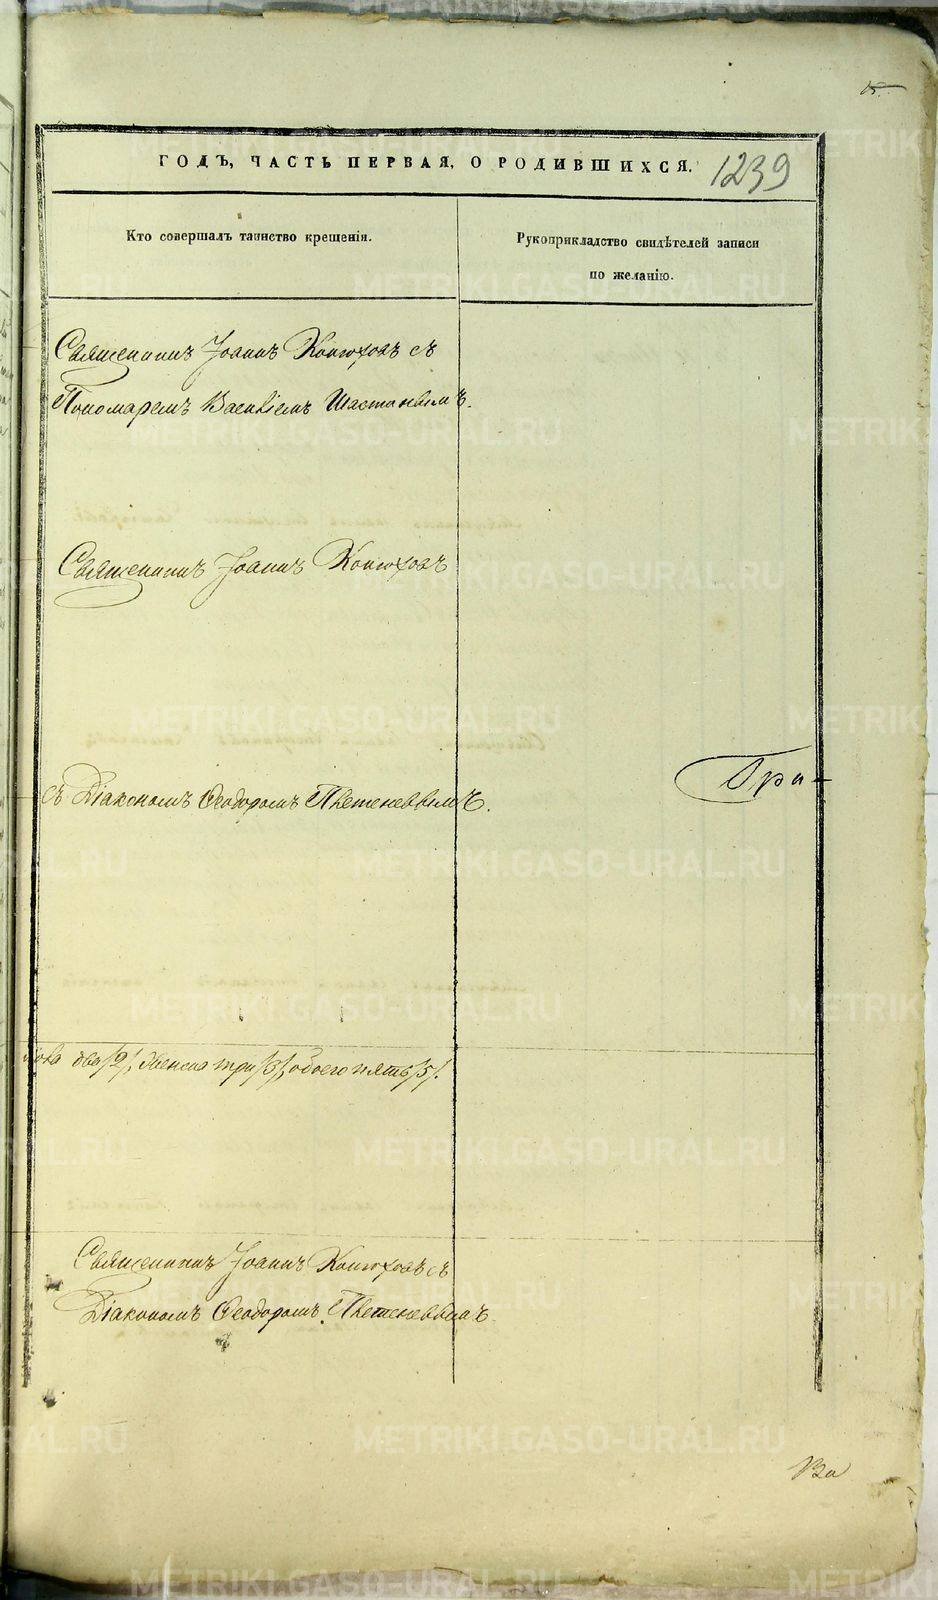 15.
ГОДЪ, ЧАСТЬ ПЕРВАЯ, О РОДИВШИХСЯ.
1239
Кто совершалъ таинство крещенія.
Рукоприкладство свидѣтелей записи
по желанію.
Священникъ Іоаннъ Конюховъ съ
Пономаремъ Василіемъ Шастовымъ.
Священникъ Іоаннъ Конюховъ
Гри-
съ Діакономъ Ѳеодоромъ Плетеневымъ.
пола два /2/, женска три /3/, обоего пять /5/.
Священникъ Іоаннъ Конюховъ съ
Діакономъ Ѳеодоромъ Плетеневымъ.
METRIKI.GASO-URAL.RU